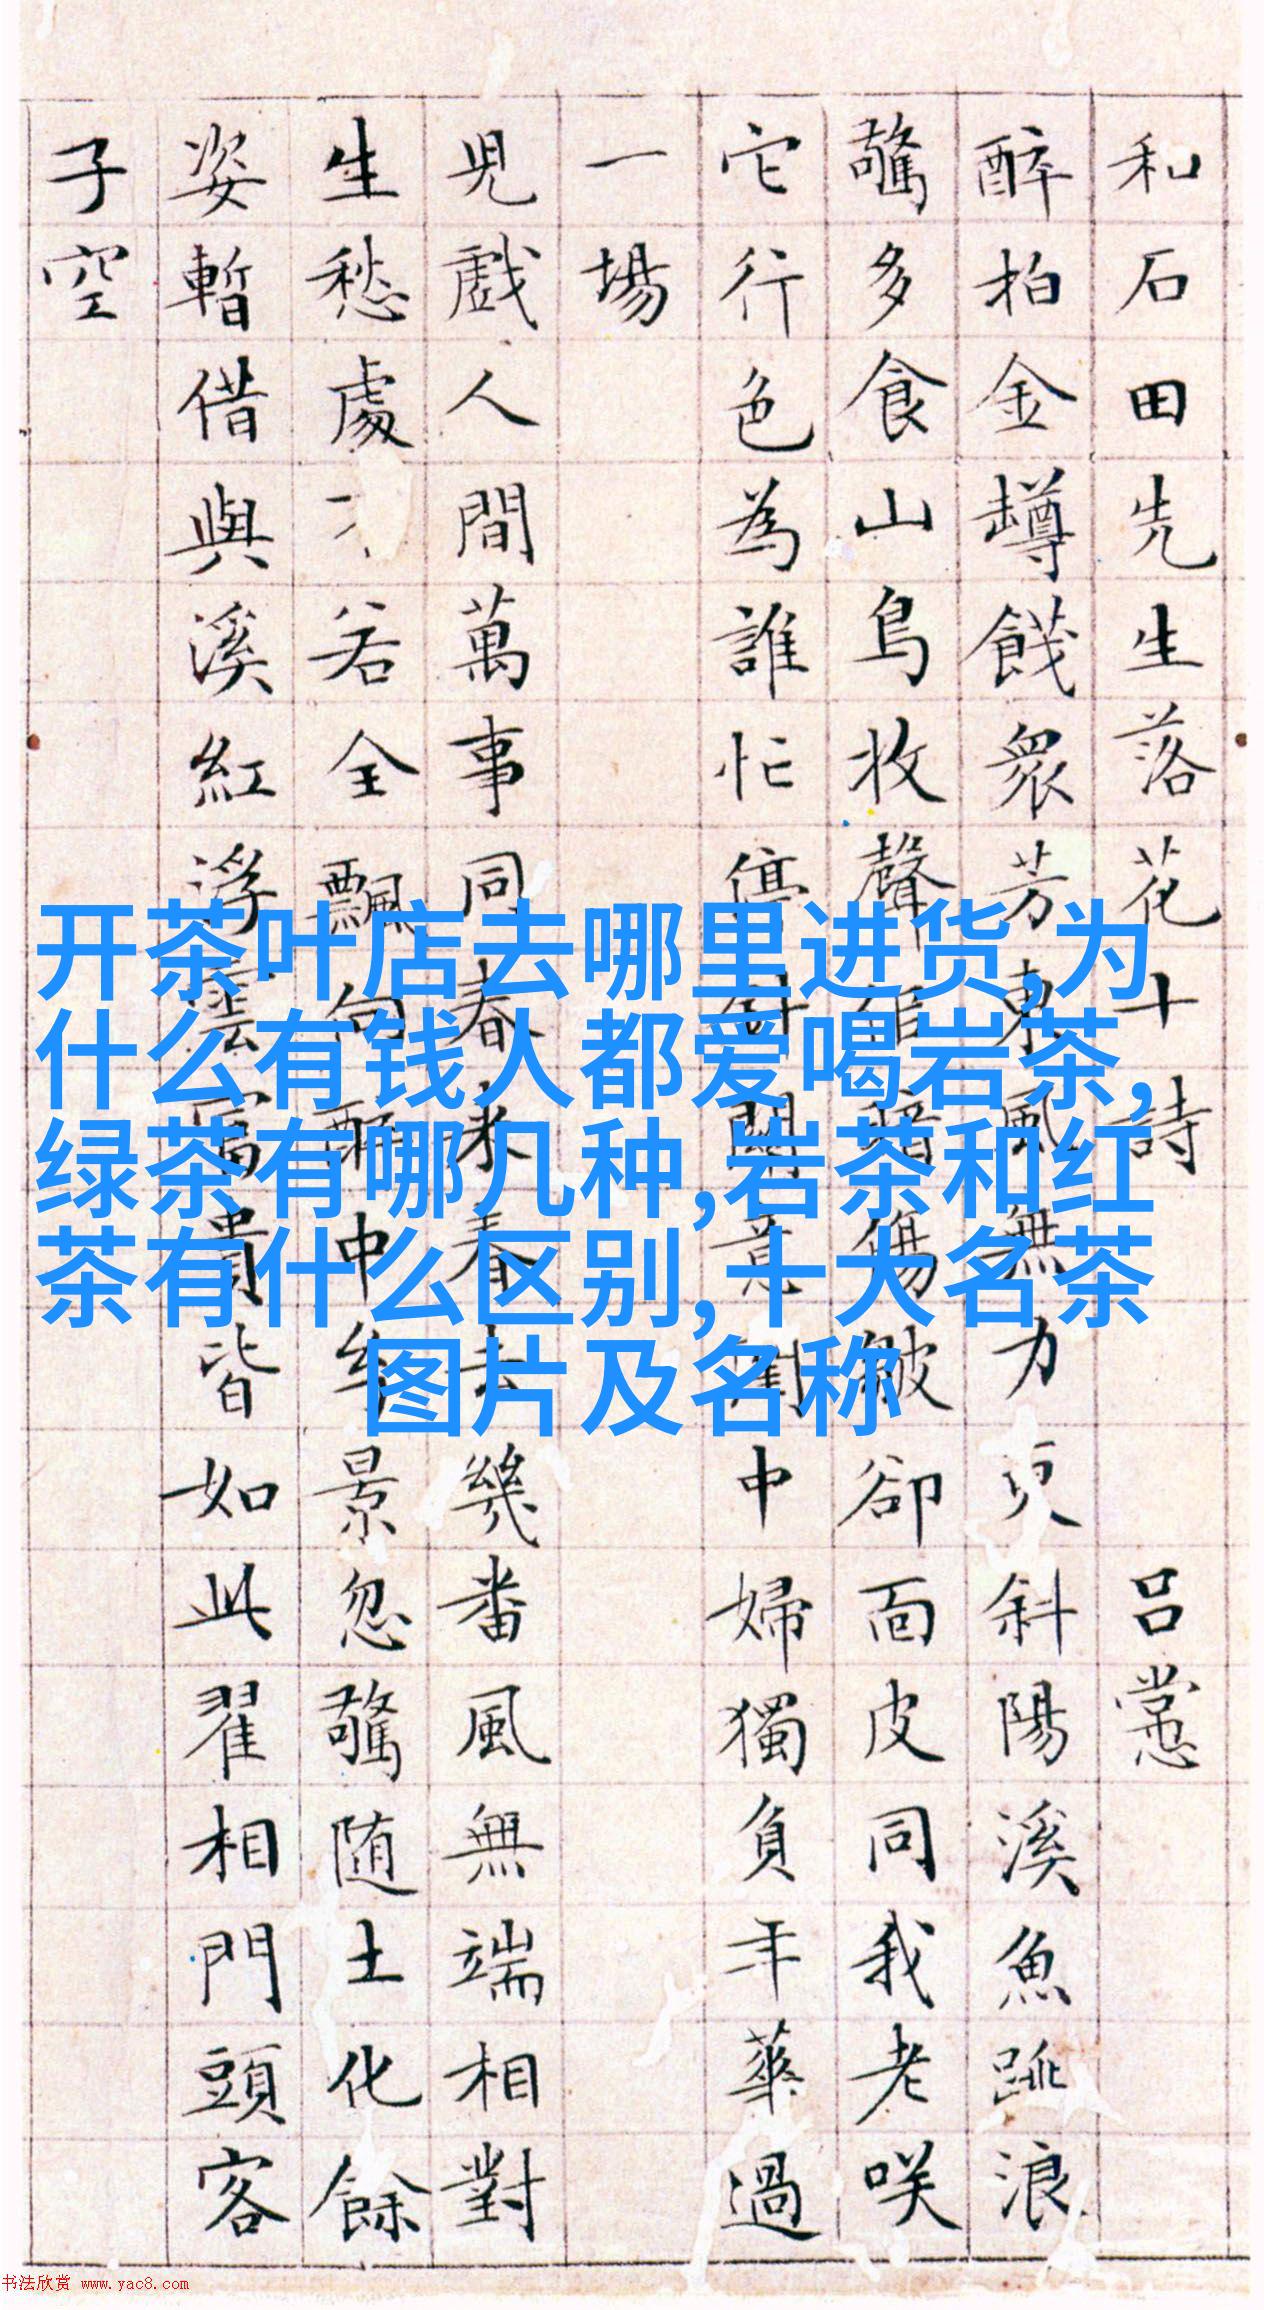 和石田先生落花十詩 呂㦂
醉拍金罇餞衆芳東風無力更斜陽溪魚跳浪
驚多食山鳥收聲暗傷皺卻面皮同我老咲
它行色為誰忙停針意對中婦獨負年華過
一場
兒戲人間萬事同春來春去幾番風無端相對
生愁處若全飄向醉中年景忽驚随土化餘
姿暫借與溪紅浮雲富貴皆如此翟相門頭客
子空
开茶叶店去哪里进货,为
什么有钱人都爱喝岩茶,
绿茶有哪几种,岩茶和红
茶有什么区别,十大名茶
图片及名称
书法欣赏 www.yac8.com